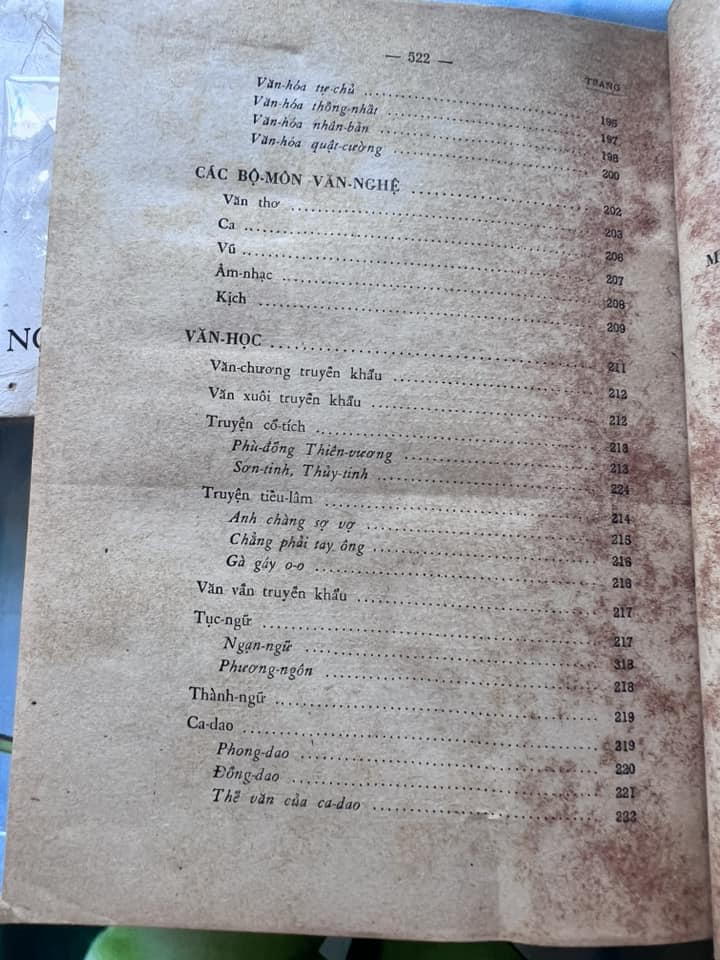 — 522 —
TRANG
Văn-hóa tự-chủ ........ 196
Văn-hóa thống-nhất ........ 197
Văn-hóa nhân-bản ........ 198
Văn-hóa quật-cường ........ 200
CÁC BỘ-MÔN VĂN-NGHỆ ........ 202
Văn thơ ........ 203
Ca ........ 206
Vũ ........ 207
Âm-nhạc ........ 208
Kịch ........ 209
VĂN-HỌC ........ 211
Văn-chương truyền khẩu ........ 212
Văn xuôi truyền khẩu ........ 212
Truyện cổ-tích ........ 213
Phù-đổng Thiên-vương ........ 213
Sơn-tinh, Thủy-tinh ........ 224
Truyện tiếu-lâm ........ 214
Anh chàng sợ vợ ........ 215
Chẳng phải tay ông ........ 216
Gà gáy o-o ........ 216
Văn vần truyền khẩu ........ 217
Tục-ngữ ........ 217
Ngạn-ngữ ........ 318
Phương-ngôn ........ 218
Thành-ngữ ........ 219
Ca-dao ........ 219
Phong-dao ........ 220
Đồng-dao ........ 221
Thể văn của ca-dao ........ 222